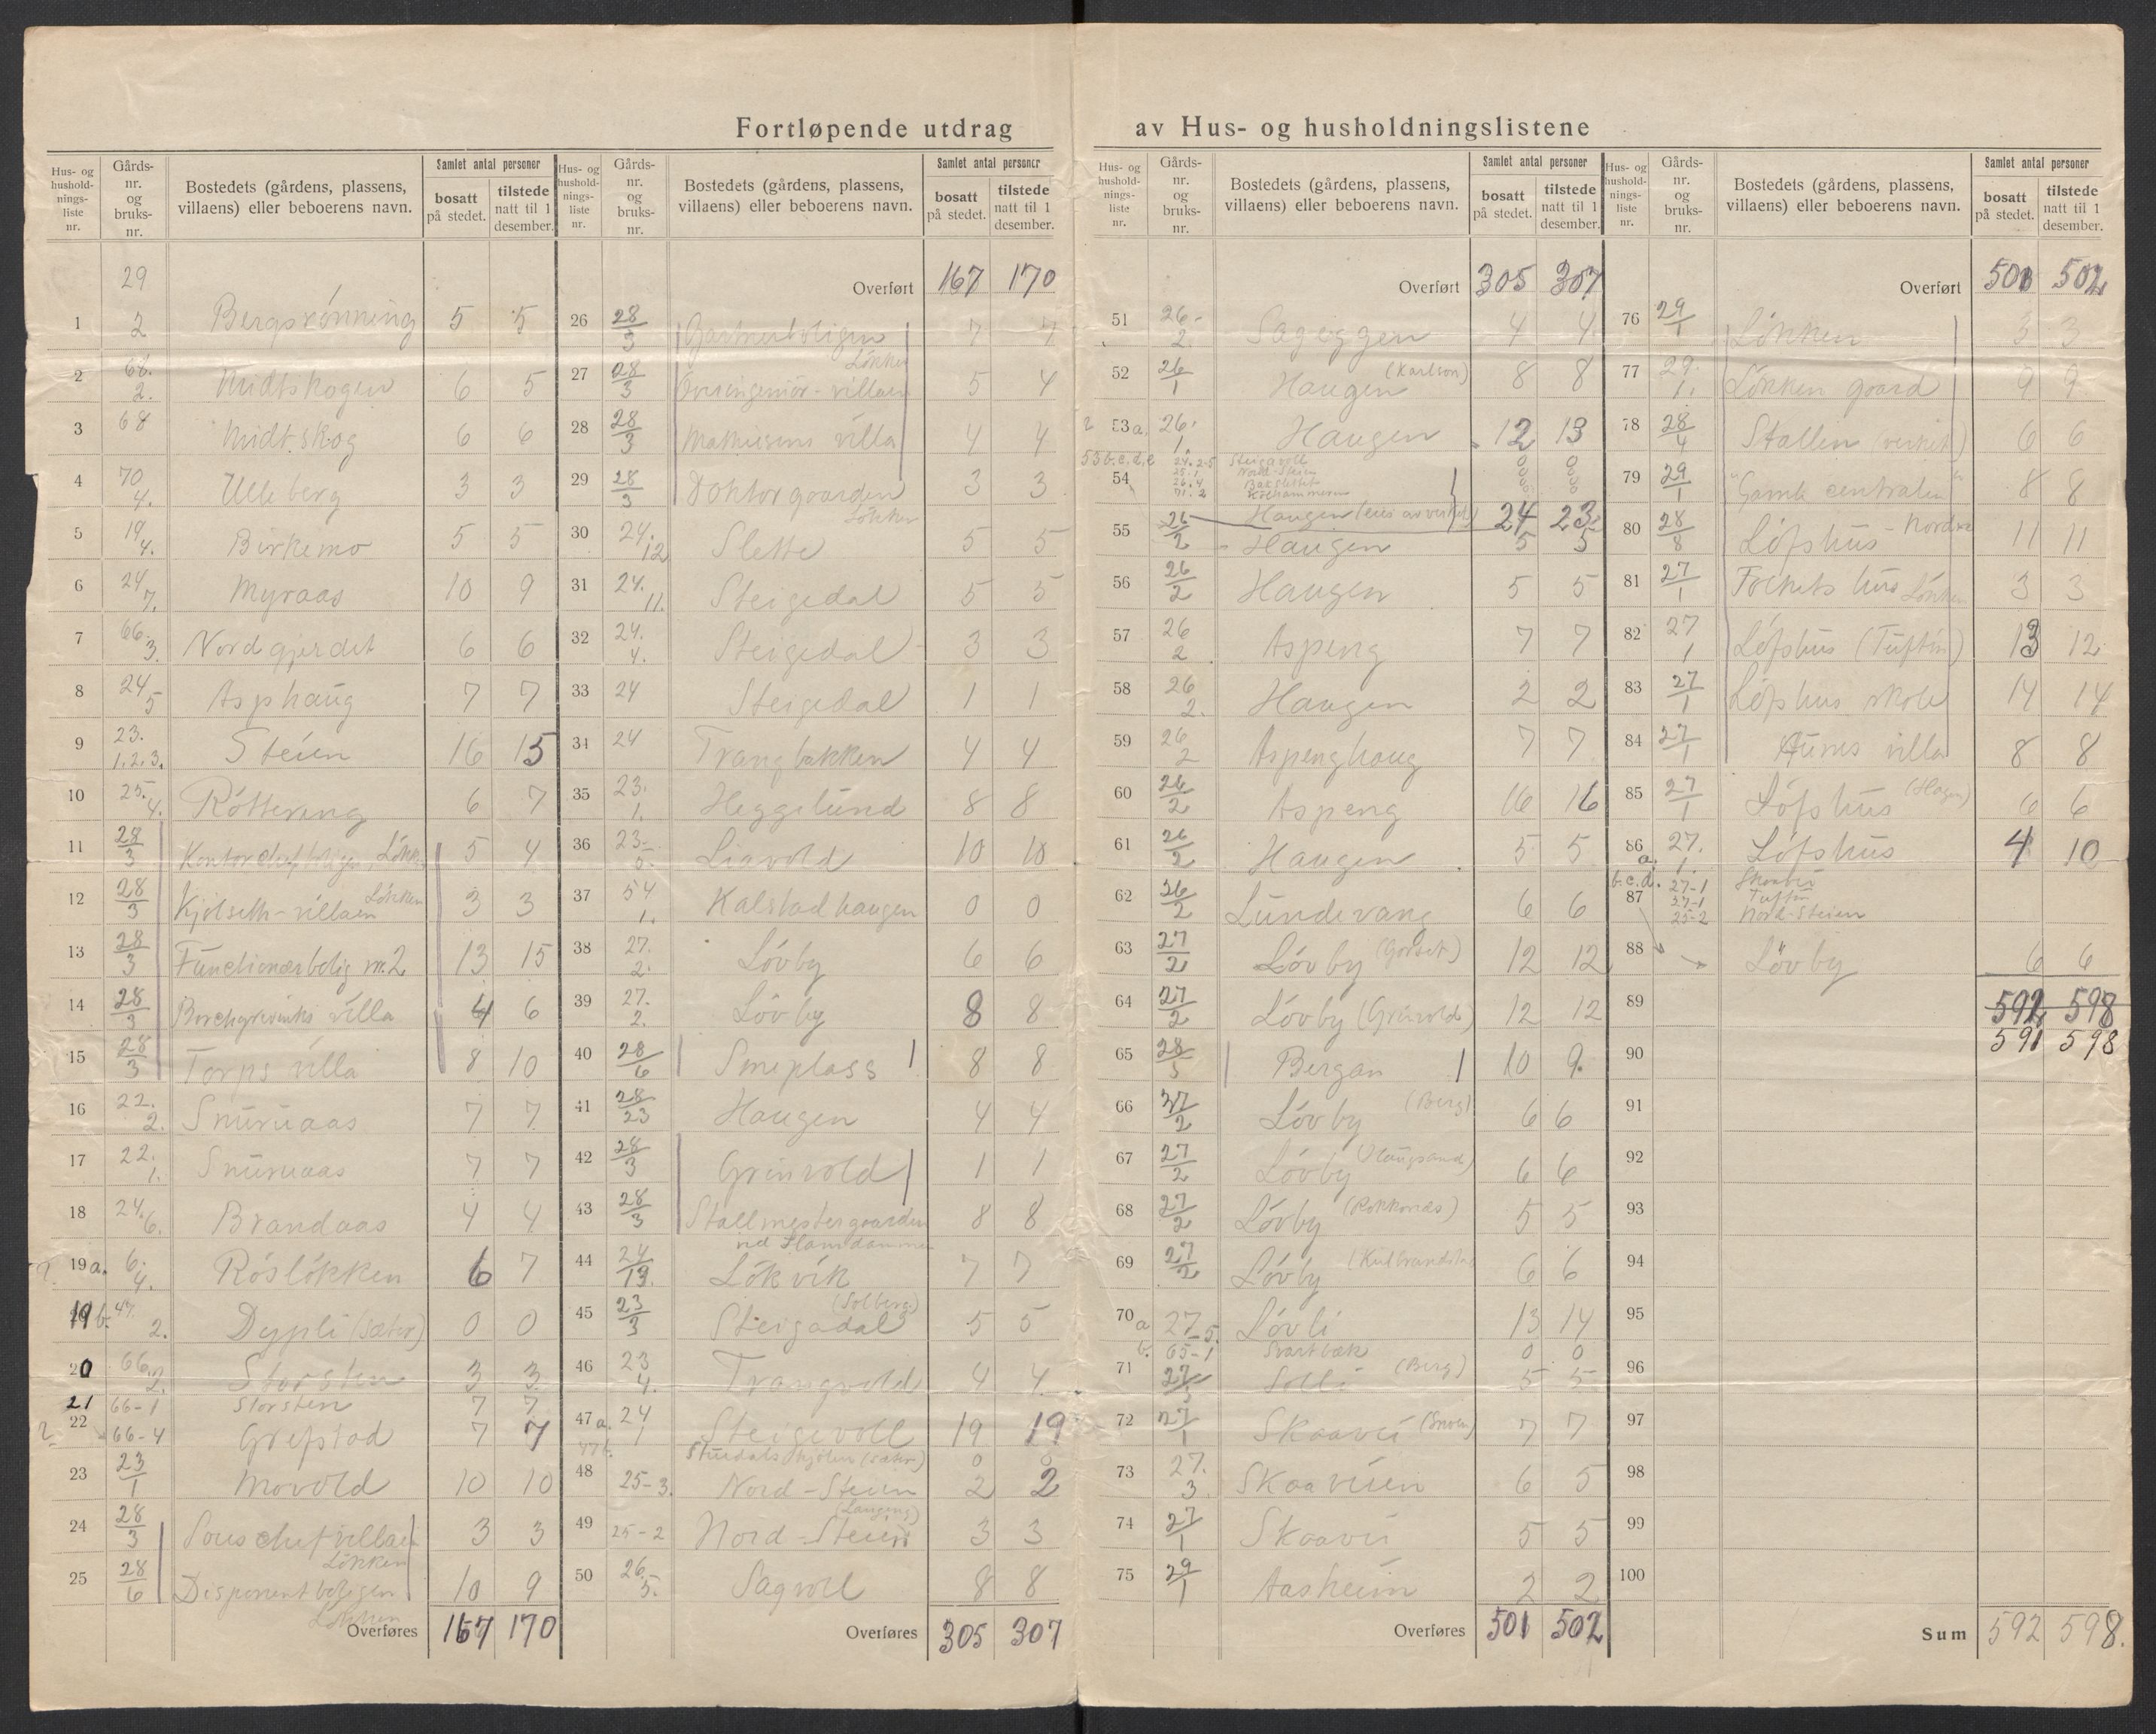 Fortløpende utdrag av Hus- og husholdningslistene
Hus- og husholdningsliste nr. | Gårds-nr. og bruks-nr. | Bostedets (gårdens, plassens, villaens) eller beboerens navn. | Samlet antal personer bosatt på stedet. | tilstede natt til 1 desember.
29
1 | 2 | Bergsrønning | 5 | 5
2 | 68. 2. | Midtskogen | 6 | 5
3 | 68 | Midt.skog | 6 | 6
4 | 70 4. | Ulleberg | 3 | 3
5 | 19 4. | Birkemo | 5 | 5
6 | 24 7. | Myraas | 10 | 9
7 | 66. 3. | Nordgjerdet | 6 | 6
8 | 24 5 | Asphaug | 7 | 7
9 | 23. 1.2.3. | Steien | 16 | 15
10 | 25. 4. | Röttereng | 6 | 7
11 | 28/3 | Kontorchefboligen, Løkken | 5 | 4
12 | 28/3 | Kjølseth-villaen Løkken | 3 | 3
13 | 28/3 | Functionærbolig nr. 2 | 13 | 15
14 | 28/3 | Borchgrevinks villa | 4 | 6
15 | 28/3 | Torps villa | 8 | 10
16 | 22. 2. | Snuruaas | 7 | 7
17 | 22. 1. | Snuruaas | 7 | 7
18 | 24. 6. | Brandaas | 4 | 4
19 a. | 6. 4. | Rösløkken | 6 | 7
19 b. | 47. 2. | Dypli (sæter) | 0 | 0
20 | 66. 2. | Storsten | 3 | 3
21 | 66-1 | Storsten | 7 | 7
22 | 66-4 | Grefstad | 7 | 7
23 | 23/1 | Movold | 10 | 10
24 | 28/3 | Souschefvillaen Løkken | 3 | 3
25 | 28/6 | Disponentboligen Løkken | 10 | 9
Overføres | 167 | 170
Hus- og husholdningsliste nr. | Gårds-nr. og bruks-nr. | Bostedets (gårdens, plassens, villaens) eller beboerens navn. | Samlet antal personer bosatt på stedet. | tilstede natt til 1 desember.
Overført | 167 | 170
26 | 28/3 | Gartnerboligen Løkken | 7 | 7
27 | 28/3 | Overingeniør-villaen | 5 | 4
28 | 28/3 | Mathisens villa | 4 | 4
29 | 28/3 | Doktorgaarden Løkken | 3 | 3
30 | 24. 12 | Slette | 5 | 5
31 | 24. 11. | Steigedal | 5 | 5
32 | 24. 4. | Steigedal | 3 | 3
33 | 24 | Steigedal | 1 | 1
34 | 24 | Trangbakken | 4 | 4
35 | 23. 1. | Heggelund | 8 | 8
36 | 23- | Liavold | 10 | 10
37 | 54 1. | Kalstadhaugen | 0 | 0
38 | 27. 2. | Løvby | 6 | 6
39 | 27. 2. | Løvby | 8 | 8
40 | 28/6 | Smeplass | 8 | 8
41 | 28/23 | Haugen | 4 | 4
42 | 28/3 | Grinvold | 1 | 1
43 | 28/3 | Stallmestergaarden ved Damdammen | 8 | 8
44 | 24/13. | Løkvik | 7 | 7
45 | 23/3 | Steigedal (Solberg) | 5 | 5
46 | 23 4. | Trangvold | 4 | 4
47 a. | 24 1 | Steigevoll | 19 | 19
47 b. (sæter) | 0 | 0
48 | 25-3. | Nord-Steien | 2 | 2
49 | 25-2 | Nord-Steien | 3 | 3
50 | 26. 5. | Sagvoll | 8 | 8
Overføres | 305 | 307
Hus- og husholdningsliste nr. | Gårds-nr. og bruks-nr. | Bostedets (gårdens, plassens, villaens) eller beboerens navn. | Samlet antal personer bosatt på stedet. | tilstede natt til 1 desember.
Overført | 305 | 307
51 | 26- 2. | Sageggen | 4 | 4
52 | 26/1 | Haugen (Karlson) | 8 | 8
53 a. | 26. 1. | Haugen | 12 | 13
53 b.c.d.e | 24.2-5 | Steigevoll | 0 | 0
25.1 | Nord-Steien | 0 | 0
54 | 26.4 | Bakslettet | 0 | 0
71.2
Haugen (eies av verket) | 24 | 23
55 | 26/2 | Haugen | 5 | 5
56 | 26/2 | Haugen | 5 | 5
57 | 26 2 | Aspeng | 7 | 7
58 | 26 2. | Haugen | 2 | 2
59 | 26 2 | Aspenghaug | 7 | 7
60 | 26/2 | Aspeng | 16 | 16
61 | 26/2 | Haugen | 5 | 5
62 | 26/2 | Lundevang | 6 | 6
63 | 27/2 | Løvby (Gorset) | 12 | 12
64 | 27/2 | Løvby (Grinvold) | 12 | 12
65 | 28/5 | Bergan | 10 | 9
66 | 27/2 | Løvby (Berg) | 6 | 6
67 | 27/2 | Løvby | 6 | 6
68 | 27/2 | Løvby (Rokkonæs) | 5 | 5
69 | 27/2 | Løvby (Kulbrandstad | 6 | 6
70 a | 27-5. | Løvli | 13 | 14
b. | 65-1 | Svartbæk | 0 | 0
71 | 27/5 | Solli (Berg) | 5 | 5
72 | 27/1 | Skaavei | 7 | 7
73 | 27. 3. | Skaaveien | 6 | 5
74 | 27/1 | Skaavei | 5 | 5
75 | 29/1 | Aasheim | 2 | 2
Overføres | 501 | 502
Hus- og husholdningsliste nr. | Gårds-nr. og bruks-nr. | Bostedets (gårdens, plassens, villaens) eller beboerens navn. | Samlet antal personer bosatt på stedet. | tilstede natt til 1 desember.
Overført | 501 | 502
76 | 29/1 | Løkken | 3 | 3
77 | 29. 1. | Løkken gaard | 9 | 9
78 | 28/4 | Stallen (verket) | 6 | 6
79 | 29/1 | "Gamle centralen" | 8 | 8
80 | 28/8 | Løfshus Nordre | 11 | 11
81 | 27/1 | Folkets hus Løkken | 3 | 3
82 | 27 1 | Løfshus (Tuftin) | 13 | 12
83 | 27/1 | Løfshus skole | 14 | 14
84 | 27/1 | Aunes villa | 8 | 8
85 | 27/1 | Løfshus (Hagen) | 6 | 6
86 a. | 27. 1. | Løfshus | 4 | 10
b.c.d. | 27-1 | Skaavei
87 | 27-1 | Tuftin
25-2 | Nord-Steien
88 | Løvby | 6 | 6
89 | 592 | 598
90 | 591 | 598
91
92
93
94
95
96
97
98
99
100
Sum | 592 | 598.